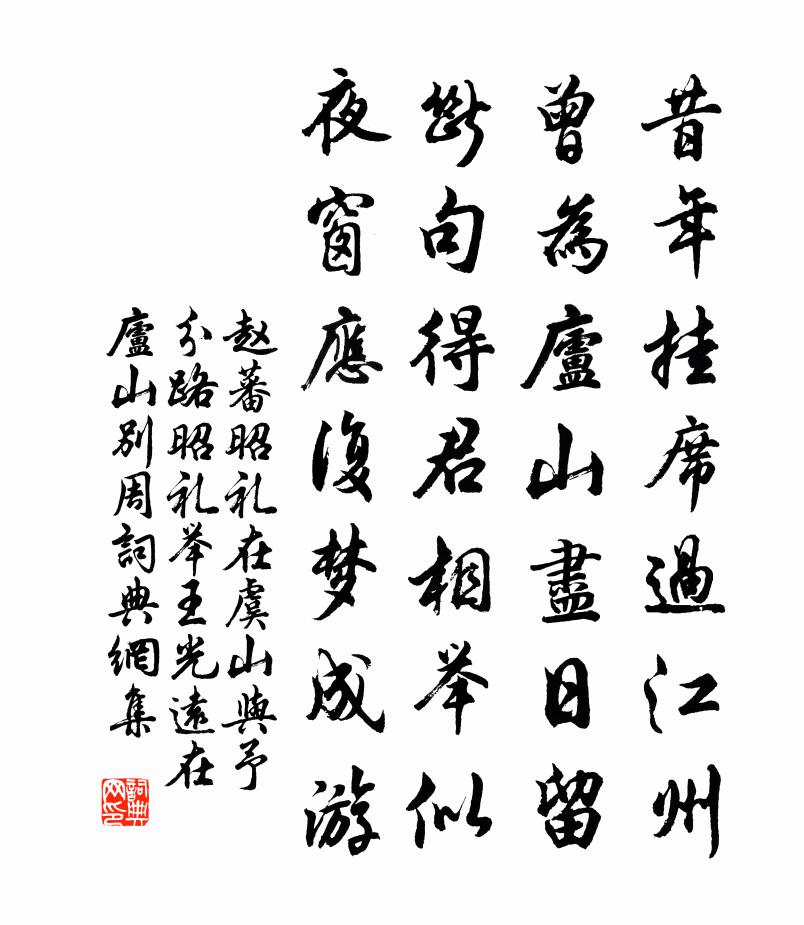 昔年挂席過江州
曾為廬山盡日留
斷句得君相举似
夜窗應復梦成游
赵蕃昭礼在虞山與予
分路昭礼举王光遠在
廬山别周詞典網集
詞典网印